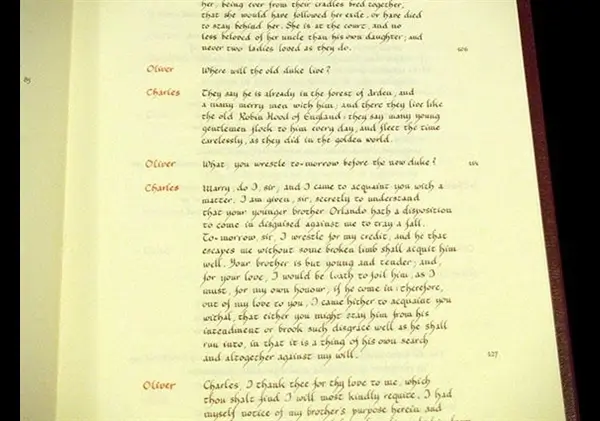 her, being ever from their cradles bred together,
that she would have followed her exile, or have died
to stay behind her. She is at the court, and no
less beloved of her uncle than his own daughter; and
never two ladies loved as they do.
Oliver Where will the old duke live?
Charles They say he is already in the forest of Arden, and
a many merry men with him; and there they live like
the old Robin Hood of England: they say many young
gentlemen flock to him every day, and fleet the time
carelessly, as they did in the golden world.
Oliver What, you wrestle to-morrow before the new duke?
Charles Marry, do I, sir; and I came to acquaint you with a
matter. I am given, sir, secretly to understand
that your younger brother Orlando hath a disposition
to come in disguised against me to try a fall.
To-morrow, sir, I wrestle for my credit, and he that
escapes me without some broken limb shall acquit him
well. Your brother is but young and tender; and,
for your love, I would be loath to foil him, as I
must, for my own honour, if he come in: therefore,
out of my love to you, I came hither to acquaint you
withal, that either you might stay him from his
intendment or brook such disgrace well as he shall
run into, in that it is a thing of his own search
and altogether against my will. 127
Oliver Charles, I thank thee for thy love to me, which
thou shalt find I will most kindly requite. I had
myself notice of my brother's purpose herein and